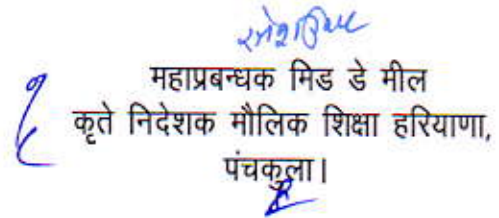 महाप्रबन्धक मिड डे मील
कृते निदेशक मौलिक शिक्षा हरियाणा,
पंचकुला।